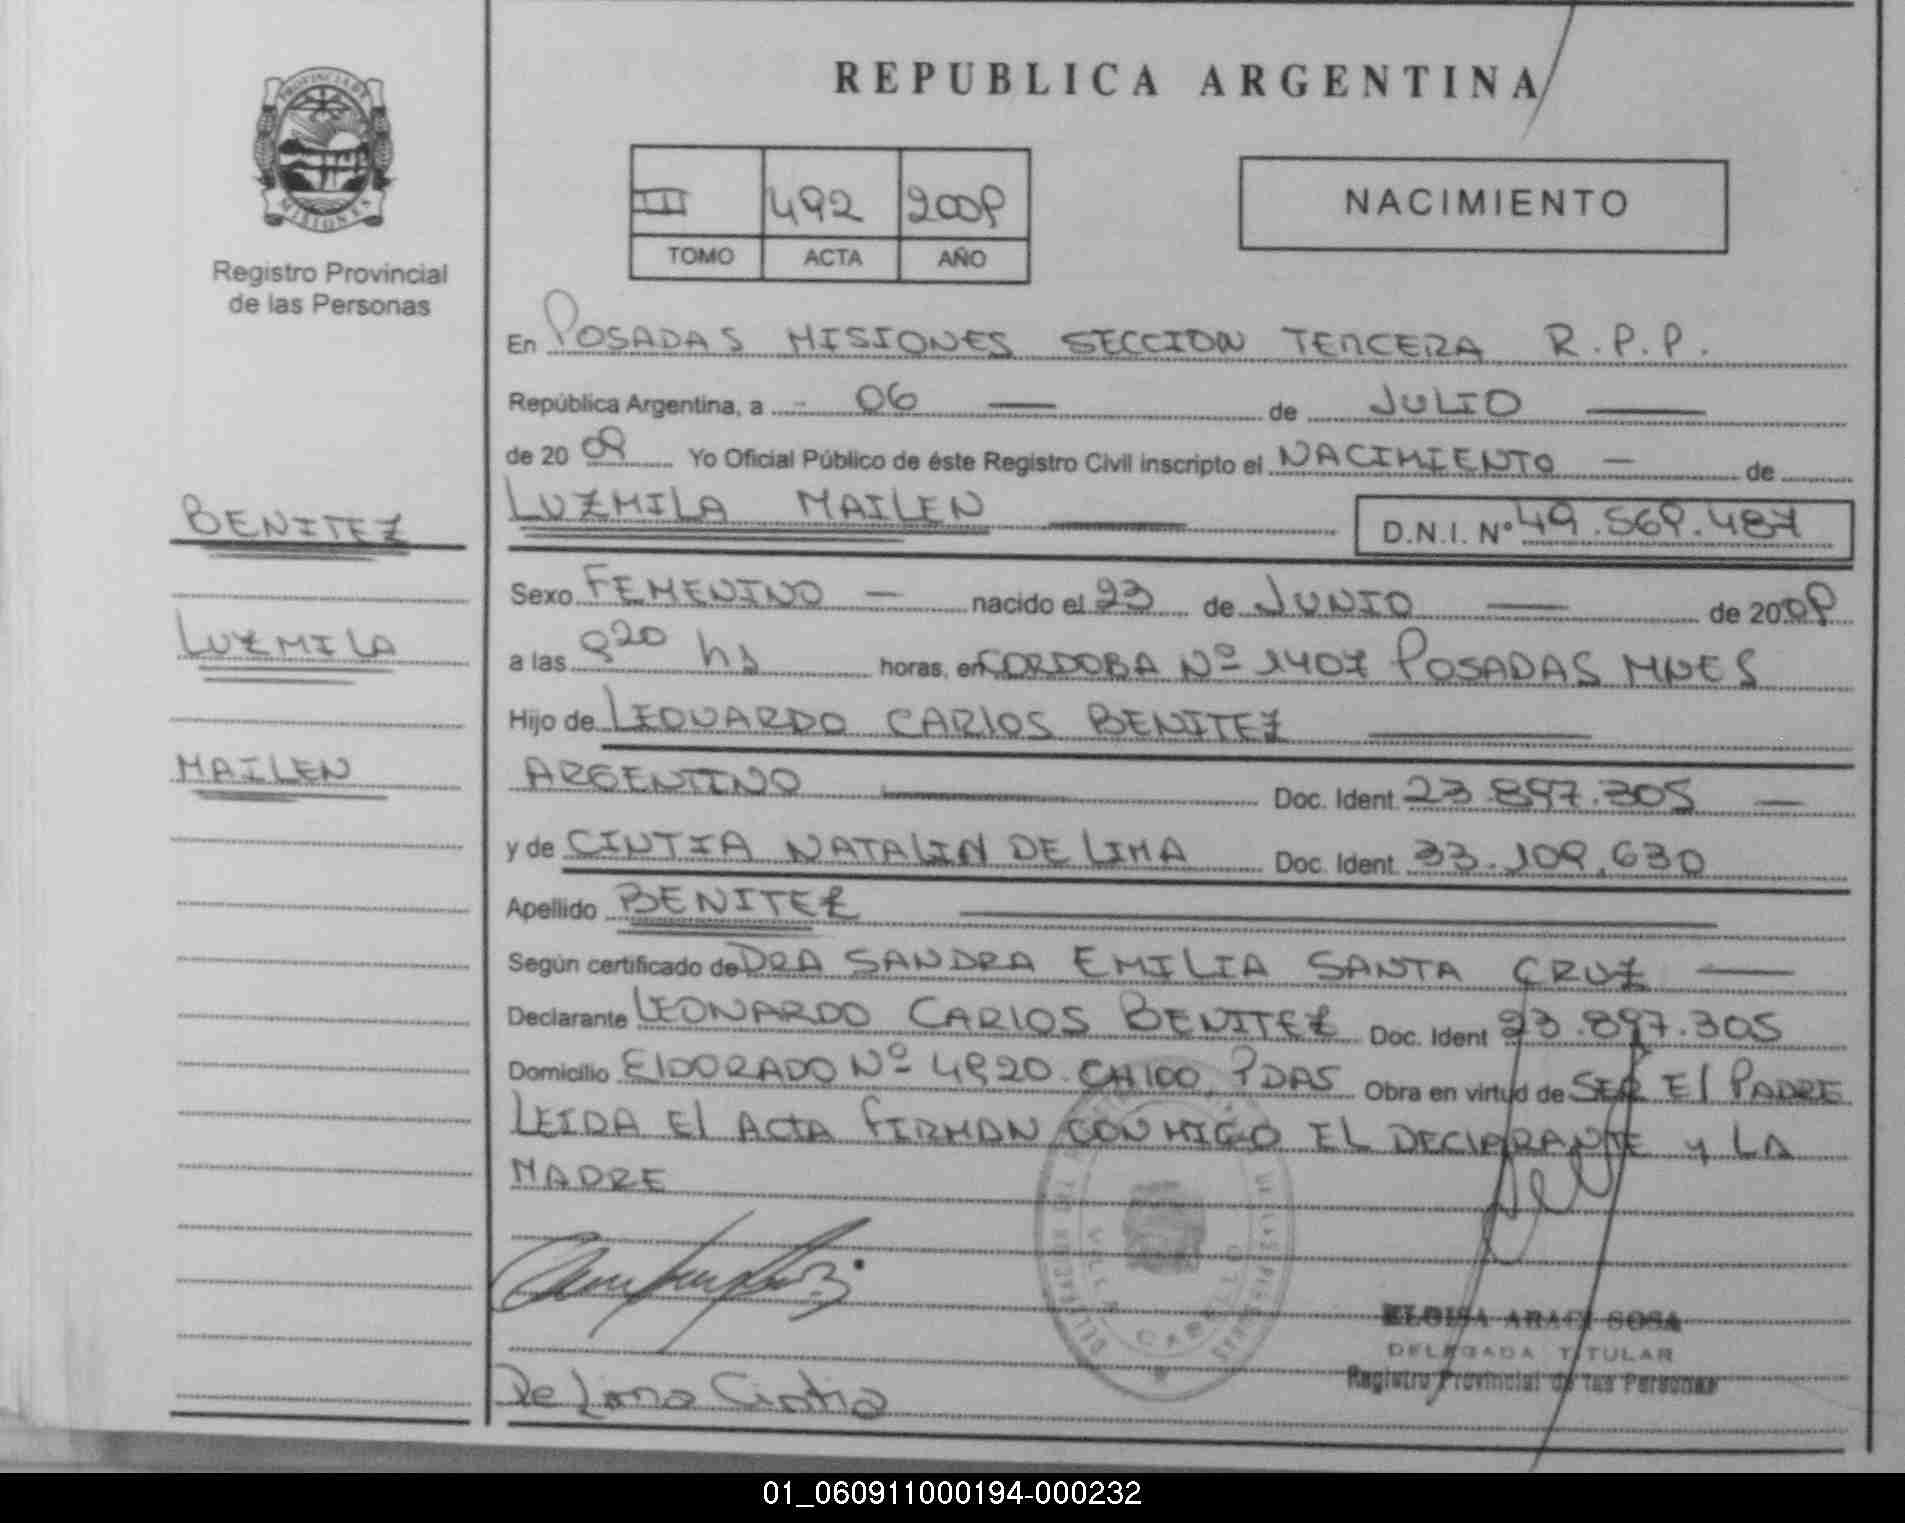 PROVINCIA DE
MISIONES
Registro Provincial
de las Personas
BENITEZ
LUZMILA
MAILEN
REPUBLICA ARGENTINA
III 492 2009
TOMO ACTA AÑO
NACIMIENTO
En POSADAS MISIONES SECCION TERCERA R.P.P.
República Argentina, a 06 de JULIO
de 2009 Yo Oficial Público de éste Registro Civil inscripto el NACIMIENTO de
LUZMILA MAILEN D.N.I. Nº 49.569.487
Sexo FEMENINO nacido el 23 de JUNIO de 2009
a las 920 hs horas, en CORDOBA Nº 1407 POSADAS MNES
Hijo de LEONARDO CARLOS BENITEZ
ARGENTINO Doc. Ident. 23.897.305
y de CINTIA NATALIN DE LIMA Doc. Ident. 33.109.630
Apellido BENITEZ
Según certificado de DRA SANDRA EMILIA SANTA CRUZ
Declarante LEONARDO CARLOS BENITEZ Doc. Ident 23.897.305
Domicilio ElDORADO Nº 4920 CH100 PDAS Obra en virtud de SER El PADRE
LEIDA El ACTA FIRMAN CONMIGO EL DECLARANTE y LA
MADRE
ELOISA ARACI SOSA
DELEGADA TITULAR
Registro Provincial de las Personas
De Lima Cintia
01_060911000194-000232